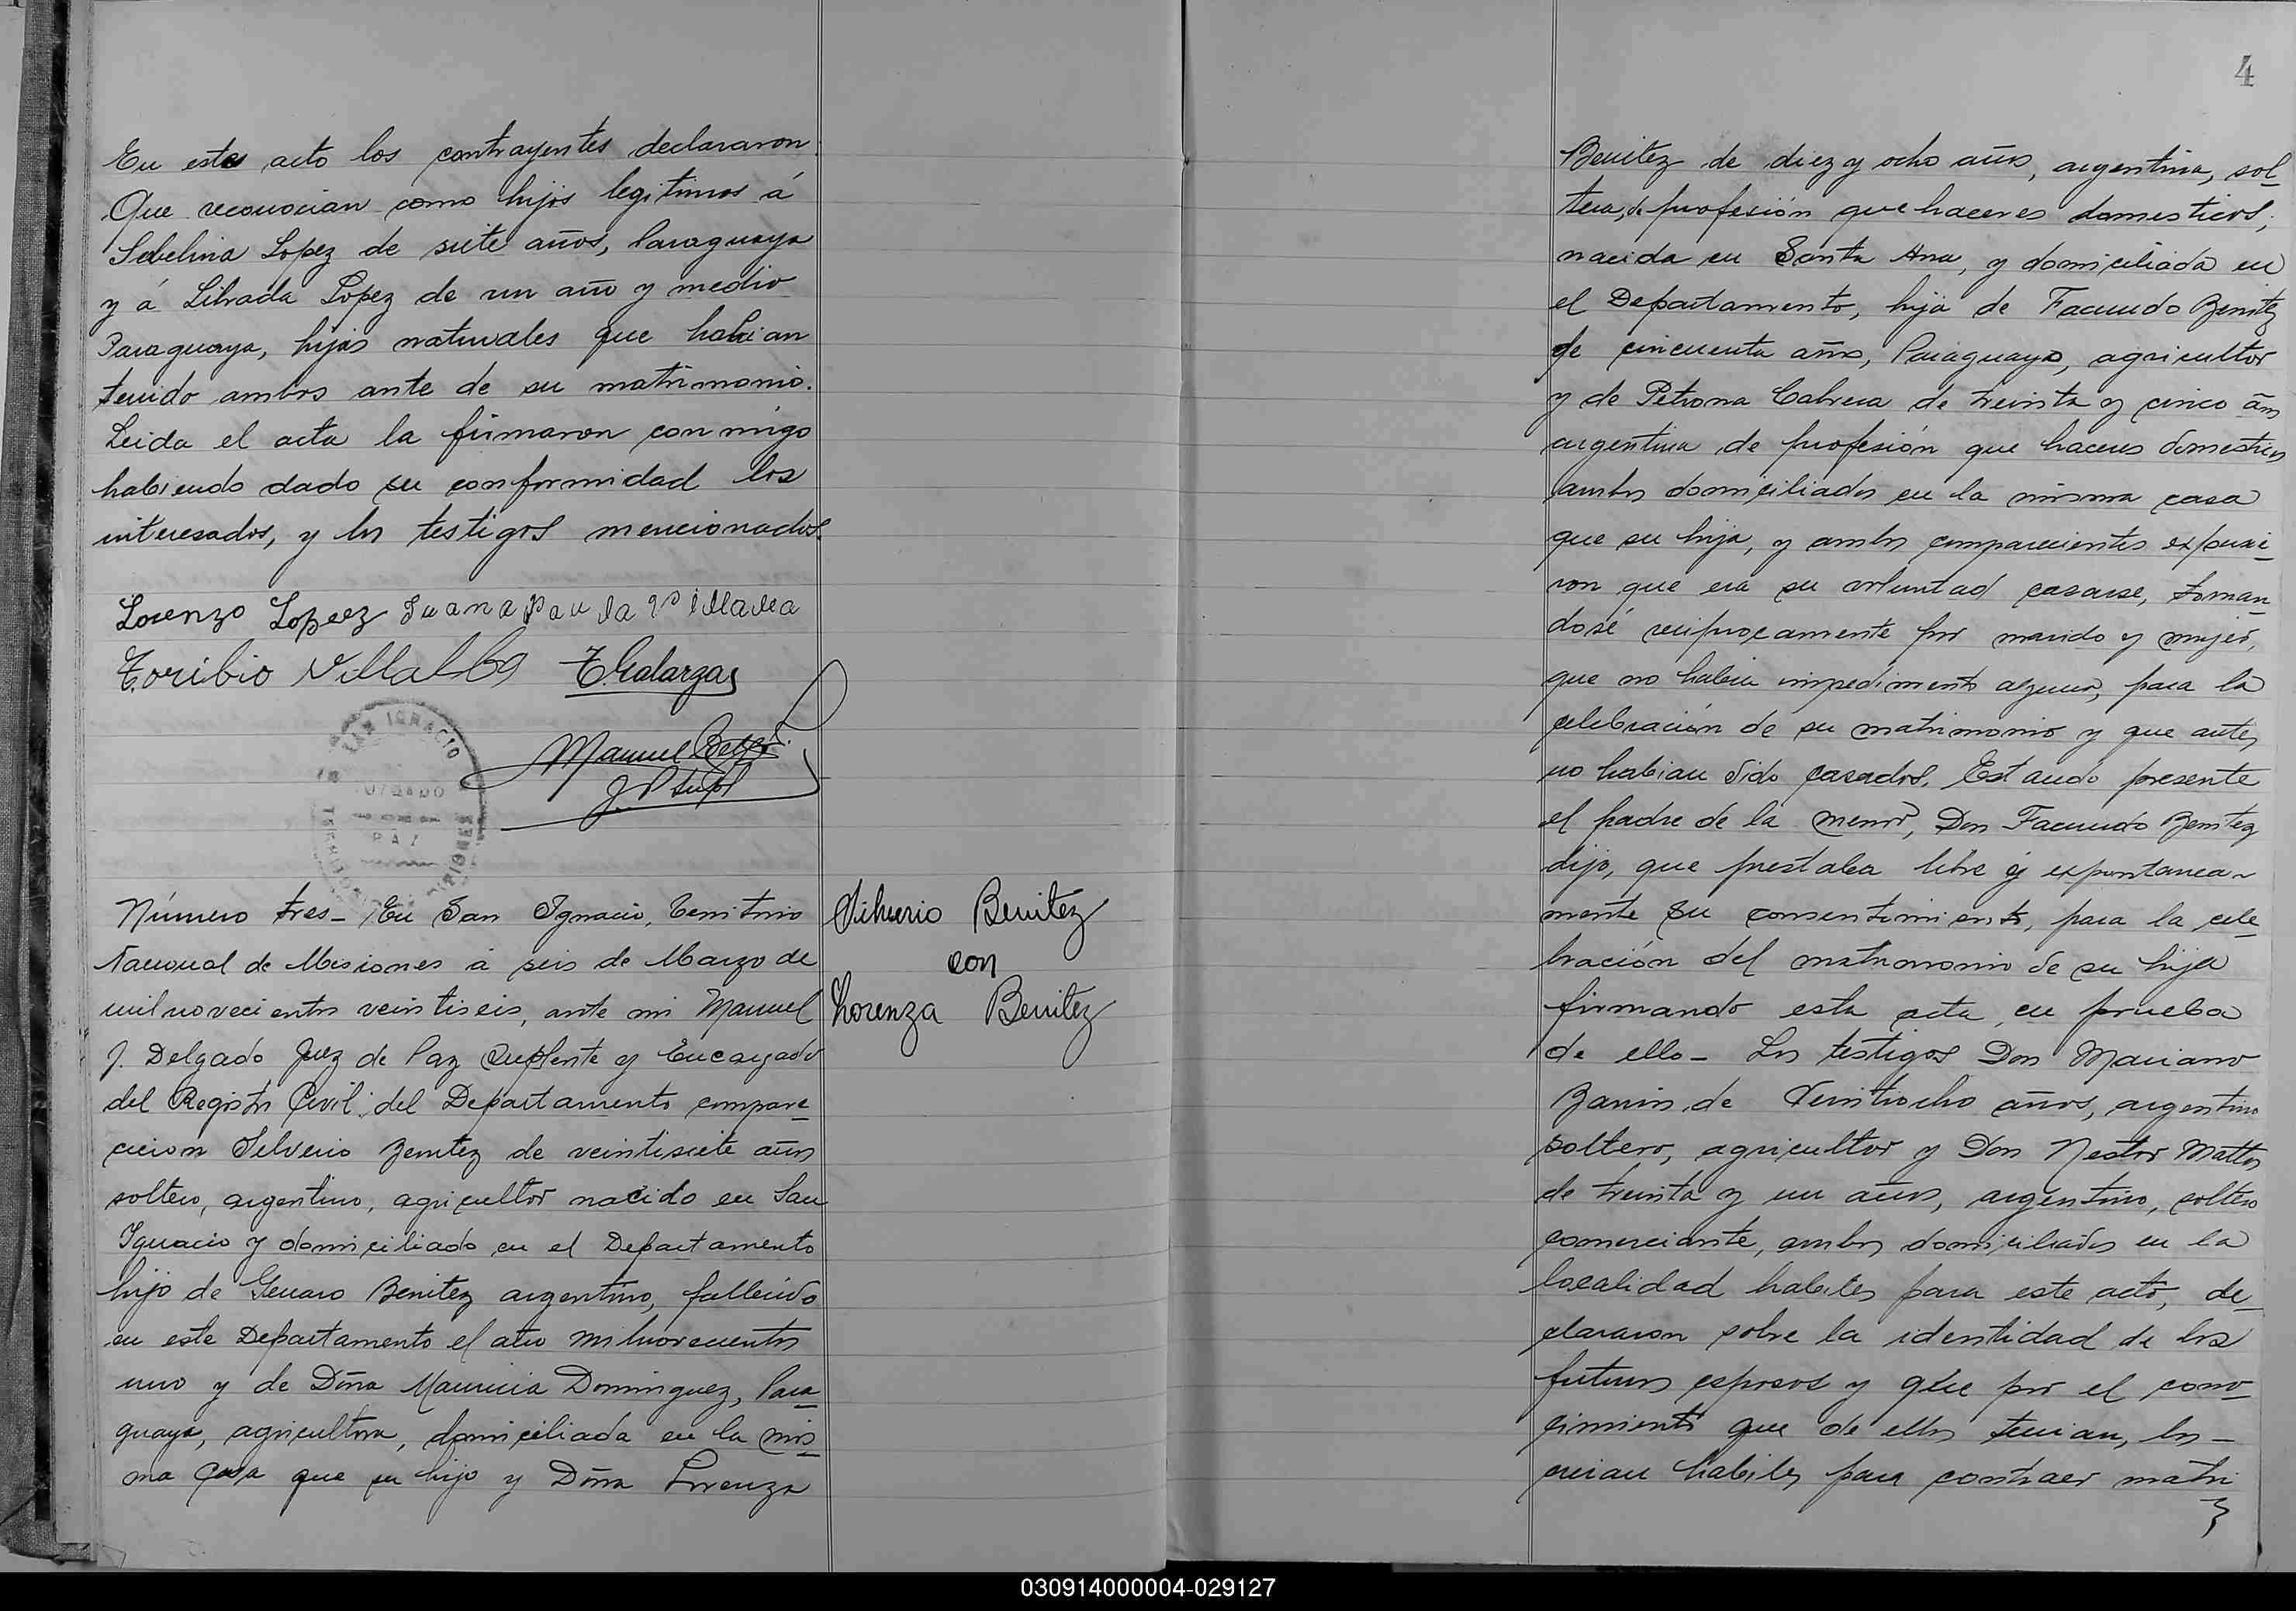 En este acto los contrayentes declararon.
Que reconocian como hijos legitimos á
Sebelina Lopez de siete años, Paraguaya
y á Librada Lopez de un año y medio
Paraguaya, hijas naturales que habian
tenido ambos ante de su matrimonio.
Leida el acta la firmaron con migo
habiendo dado su conformidad los
interesados, y los testigos mencionados.
Lorenzo Lopez Juana Paula Villalba
Toribio Villalba T. Galarza
Manuel
J. P. Supl
SAN IGNACIO
JUZGADO
DE
PAZ
Número tres_ En San Ignacio, Territorio
Nacional de Misiones á seis de Marzo de
mil novecientos veintiseis, ante mi Manuel
J. Delgado Juez de Paz Suplente y Encargado
del Registro Civil del Departamento compare_
cieron Silverio Benitez de veintisiete años
soltero, argentino, agricultor nacido en San
Ignacio y domiciliado en el Departamento
hijo de Genaro Benitez argentino, fallecido
en este Departamento el año mil novecientos
uno y de Doña Mauricia Dominguez, Para_
guaya, agricultora, domiciliada en la mis_
ma casa que su hijo y Doña Lorenza
Silverio Benitez
con
Lorenza Benitez
4
Benitez de diez y ocho años, argentina, sol_
tera, de profesión que haceres domesticos,
nacida en Santa Ana, y domiciliada en
el Departamento, hija de Facundo Benitez
de cincuenta años, Paraguayo, agricultor
y de Petrona Cabrera de treinta y cinco años
argentina de profesión que haceres domesticos
ambos domiciliados en la misma casa
que su hija, y ambos comparecientes expusie_
ron que era su voluntad casarse, toman_
dosé reciprocamente por marido y mujer,
que no habia impedimento alguno, para la
celebración de su matrimonio y que antes
no habian sido casados. Estando presente
el padre de la menor, Don Facundo Benitez
dijo, que prestaba libre y expontanea_
mente su consentimiento, para la cele_
bración del matrimonio de su hija
firmando esta acta en prueba
de ello_ Los testigos Don Mariano
de veintiocho años, argentino
soltero, agricultor y Don Nestor Mattos
de treinta y un años, argentino, soltero
comerciante, ambos domiciliados en la
localidad habiles para este acto, de_
clararon sobre la identidad de los
futuros esposos y que por el cono_
cimiento que de ellos tenian, los_
creian habiles para contraer matri
030914000004-029127